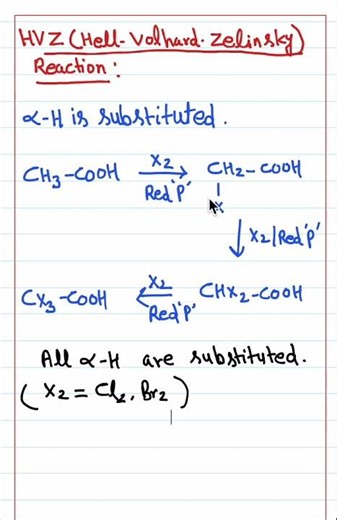 HVZ (Hell-Volhard-Zelinsky)
Reaction:
α-H is substituted.
CH3-COOH X2 Red 'P' → CH2-COOH
X
↓ X2/Red 'P'
CX3-COOH ← X2 Red 'P' CHX2-COOH
All α-H are substituted.
(X2 = Cl2, Br2)